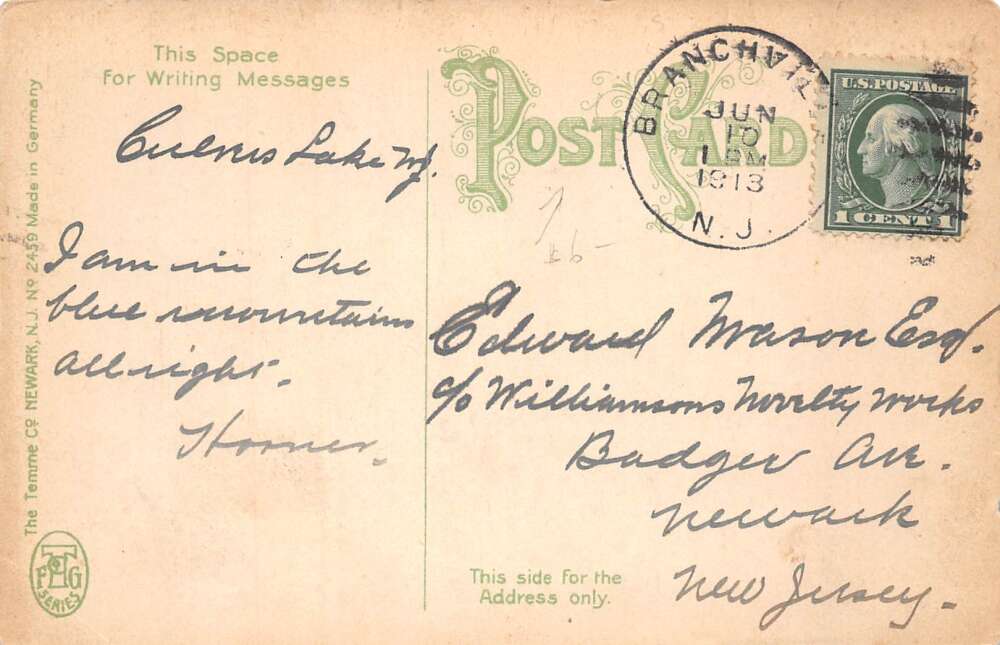 This Space
For Writing Messages
POST CARD
BRANCHVILLE
JUN
10
1 PM
1913
N. J.
U.S. POSTAGE
1 CENT 1
Culvers Lake NJ.
I am in the
blue mountains
all right.
Horner.
Edward Mason Esq.
c/o Williamsons Novelty Works
Badger Ave.
Newark
New Jersey.
This side for the
Address only.
The Temme Co. NEWARK, N.J. No 2459 Made in Germany
SERIES